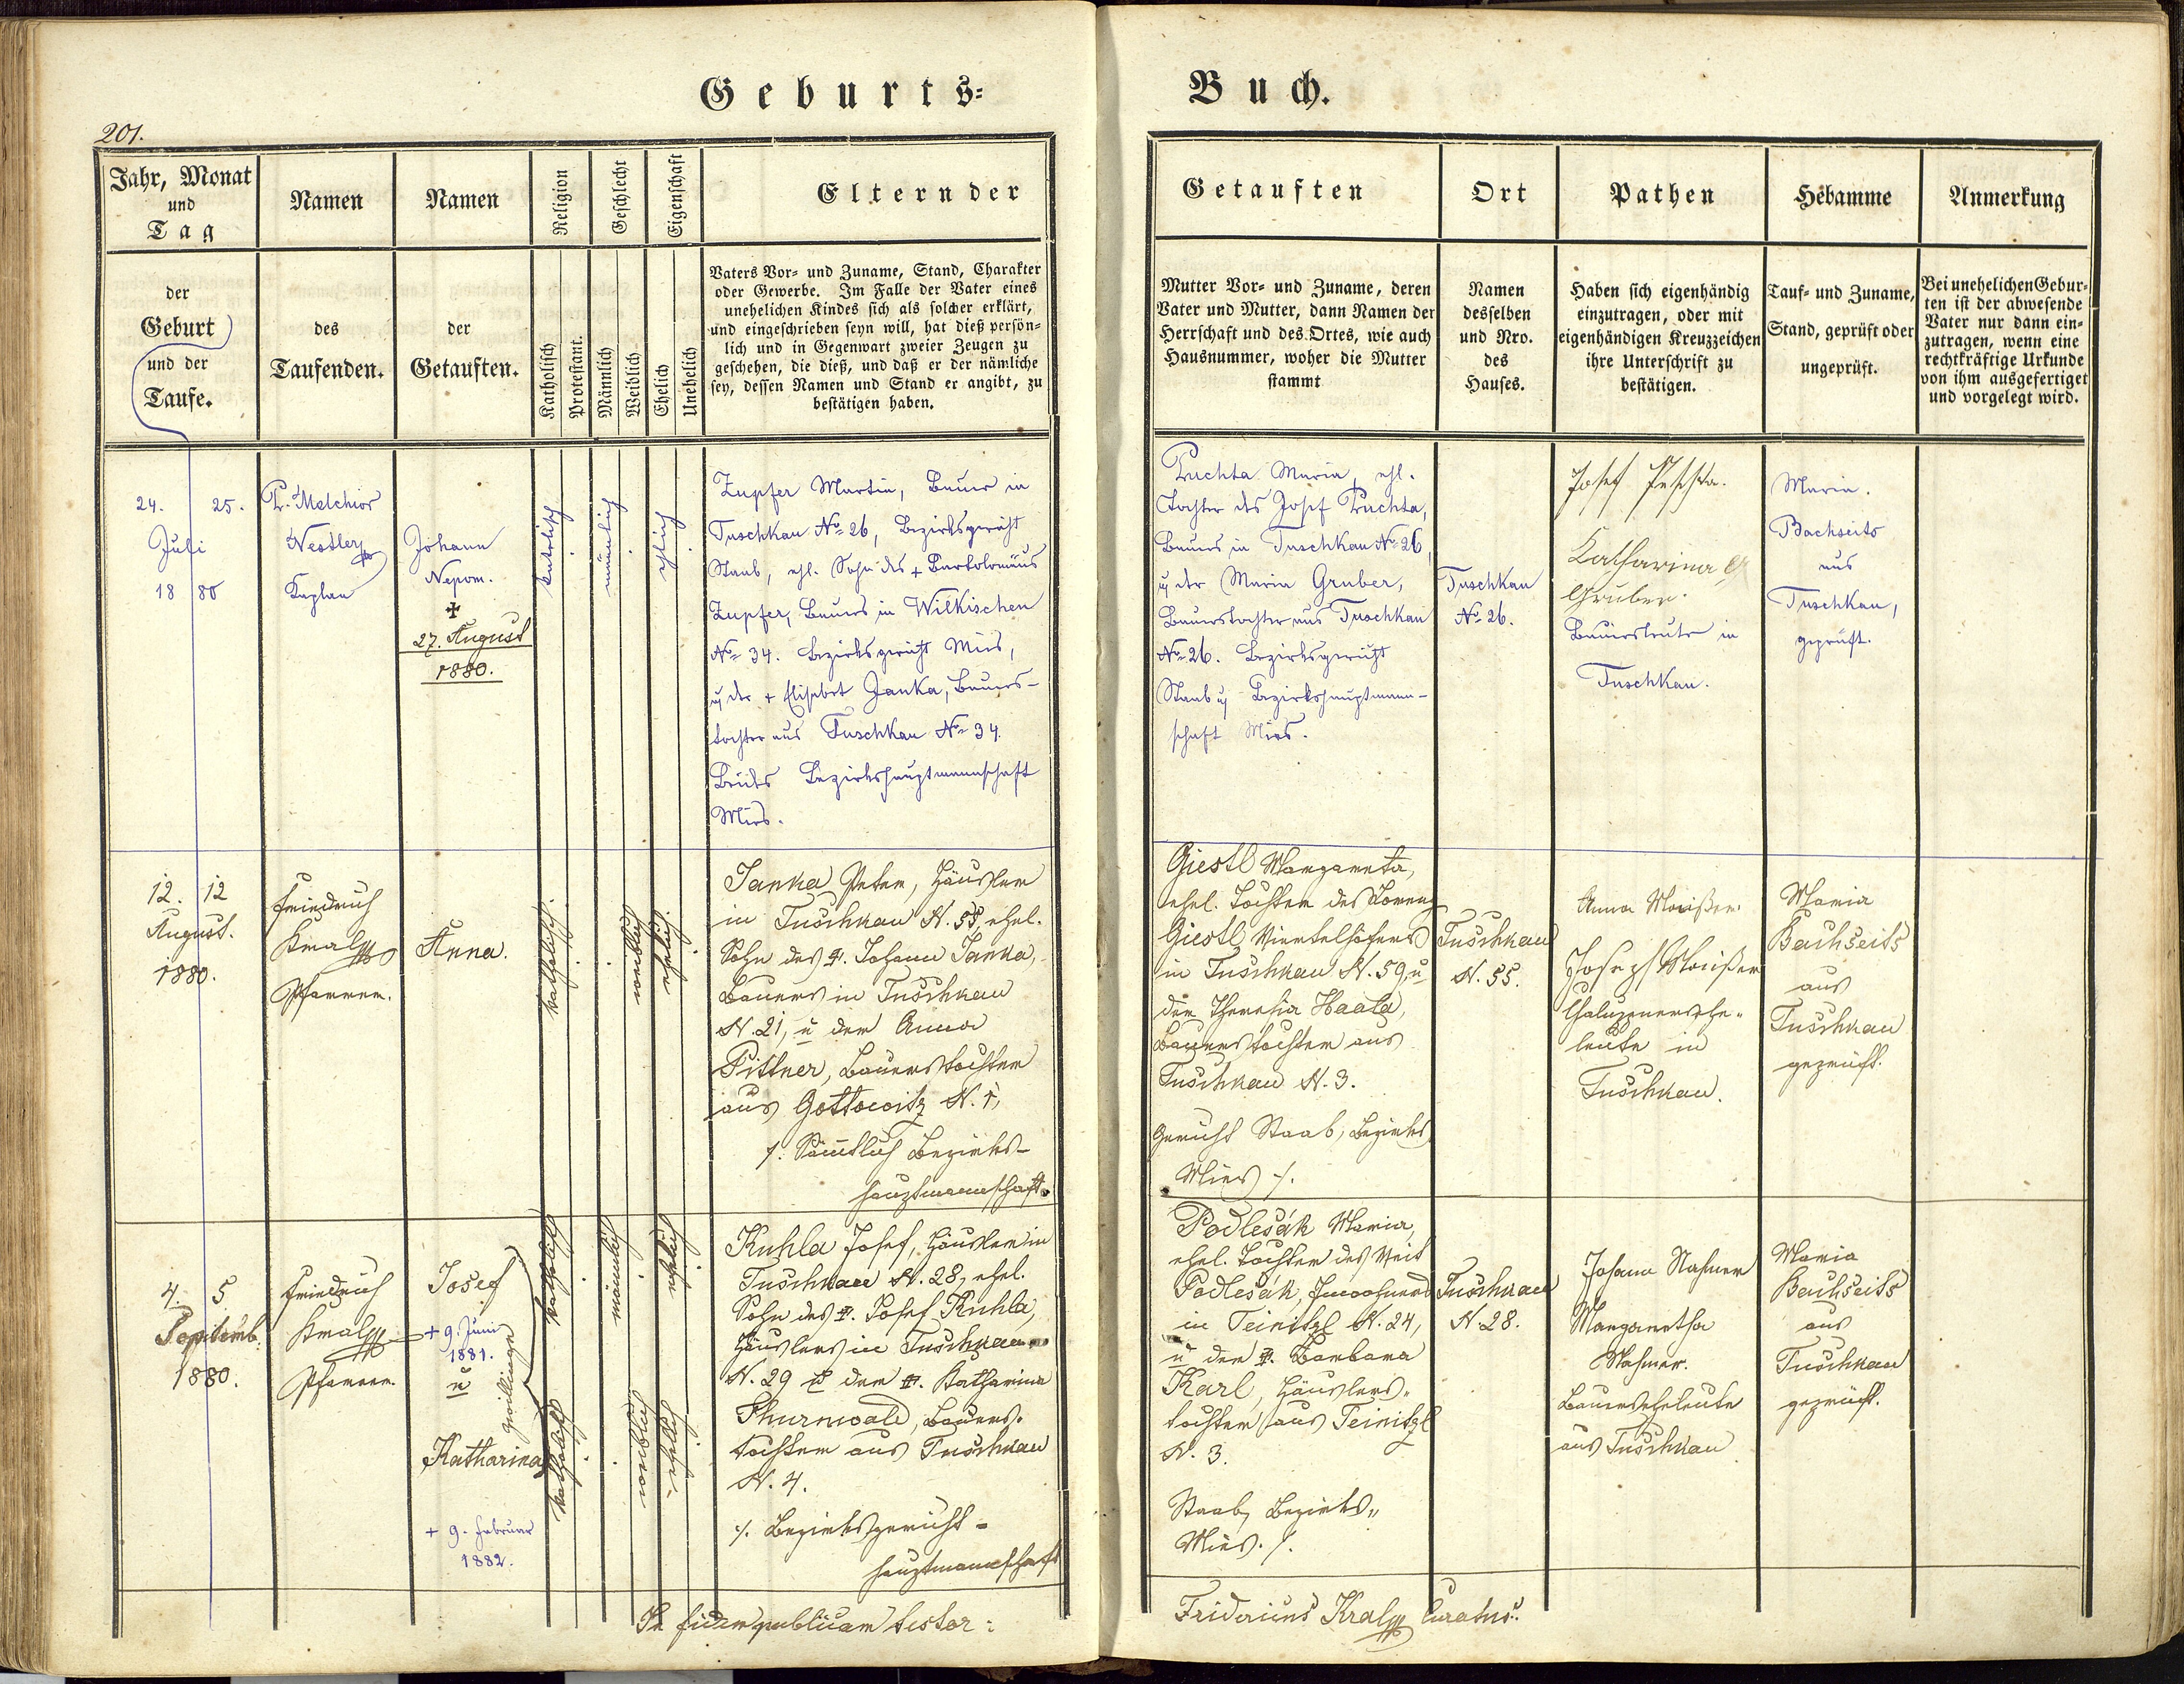 Geburts=
Buch.
201.
Jahr, Monat
und
Tag
der
Geburt
und der
Taufe.
Namen
des
Taufenden.
Namen
der
Getauften.
Religion
Katholisch
Protestant.
Geschlecht
Männlich
Weiblich
Eigenschaft
Ehelich
Unehelich
Eltern der
Vaters Vor= und Zuname, Stand, Charakter
oder Gewerbe. Im Falle der Vater eines
unehelichen Kindes sich als solcher erklärt,
und eingeschrieben seyn will, hat dieß persön=
lich und in Gegenwart zweier Zeugen zu
geschehen, die dieß, und daß er der nämliche
sey, dessen Namen und Stand er angibt, zu
bestätigen haben.
Getauften
Mutter Vor= und Zuname, deren
Vater und Mutter, dann Namen der
Herrschaft und des Ortes, wie auch
Hausnummer, woher die Mutter
stammt
Ort
Namen
desselben
und Nro.
des
Hauses.
Pathen
Haben sich eigenhändig
einzutragen, oder mit
eigenhändigen Kreuzzeichen
ihre Unterschrift zu
bestätigen.
Hebamme
Tauf= und Zuname,
Stand, geprüft oder
ungeprüft.
Anmerkung
Bei unehelichen Gebur=
ten ist der abwesende
Vater nur dann ein=
zutragen, wenn eine
rechtkräftige Urkunde
von ihm ausgefertiget
und vorgelegt wird.
24. 25.
Juli
18 80
P. Melchior
Nestler
Kaplan
Johann
Nepom.
✠
27. August
1880.
katolisch
männlich
ehlich
Zupfer Martin, Bauer in
Tuschkau No 26, Bezirksgericht
Staab, ehl. Sohn des + Bartolomäus
Zupfer, Bauers in Wilkischen
No 34. Bezirksgericht Mies,
u der + Elisabet Janka, Bauers-
tochter aus Tuschkau No 34.
Beides Bezirkshauptmannschaft
Mies.
Puchta Maria, ehl.
Tochter des Josef Puchta,
Bauers in Tuschkau No 26,
u der Maria Gruber,
Bauerstochter aus Tuschkau
No 26. Bezirksgericht
Staab u Bezirkshauptmann-
schaft Mies.
Tuschkau
No 26.
Josef
Katharina
Gruber.
Bauersleute in
Tuschkau.
Maria.
Bachseits
aus
Tuschkau,
geprüft.
12. 12
August.
1880.
Friedrich
Kral
Pfarrer.
Anna.
katholisch.
weiblich
ehelich.
Janka Peter, Häusler
in Tuschkau N. 55, ehel.
Sohn des ✠. Johann Janka,
Bauers in Tuschkau
N. 21, u der Anna
Pittner, Bauerstochter
aus Gottowitz N. 1,
/. Sämtlich Bezirks-
hauptmannschaft.
Giestl Margareta,
ehel. Tochter des Lorenz
Giestl Viertelhöfers
in Tuschkau N. 59, u
der Theresia Haala,
Bauerstochter aus
Tuschkau N. 3.
Gericht Staab, Bezirks
Mies /.
Tuschkau
N. 55.
Anna
Joseph
Chaluppnersehe=
leute in
Tuschkau.
Maria
Bachseits
aus
Tuschkau
geprüft.
4. 5
Septemb.
1880.
Friedrich
Kral
Pfarrer.
Josef
+ 9. Juni
1881.
u
Zwillinge
Katharina
+ 9. Februar
1882.
katholisch
männlich
ehelich
katholisch
weiblich
ehelich
Kuhla Josef, Häusler in
Tuschkau N. 28, ehel.
Sohn des ✠. Josef Kuhla,
Häuslers in Tuschkau
N. 29 u der ✠. Katharina
Thurnwald, Bauers-
tochter aus Tuschkau
N. 4.
/. Bezirksgericht -
hauptmannschaft
Podlesák Maria,
ehel. Tochter des Veit
Podlesák, Inwohners
in Teinitzl N. 24,
u der ✠. Barbara
Karl, Häuslers=
tochter aus Teinitzl
N. 3.
Staab, Bezirks=
Mies. /.
Tuschkau
N. 28.
Johann
Margaretha
Bauerseheleute
aus Tuschkau
Maria
Bachseits
aus
Tuschkau
geprüft.
In fidem publicam testor:
Fridericus Kral Curatus.